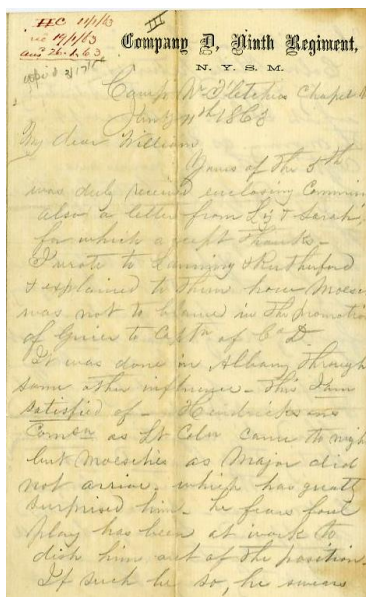 III
HC 10/1/63
rec 14/1/63
ans 26.1.63
Company D, Ninth Regiment,
N. Y. S. M.
Camp Nr Fletcher Chapel
Jany 11th 1863
My dear William
Yours of the 5th
was duly received enclosing Commis
also a letter from Liz & Sarah,
for which accept thanks -
I wrote to Lansing & Rutherford
& explained to them how Moesch
was not to blame in the promotion
of Guice to Captn of Co D.
It was done in Albany through
some other influence - this I am
satisfied of - Hendricksons
Comsn as Lt Colon came to nigh
but Moeschs as Major did
not arrive. which has greatly
surprised him - he fears foul
play has been at work to
dish him out of the position.
If such be so, he swears